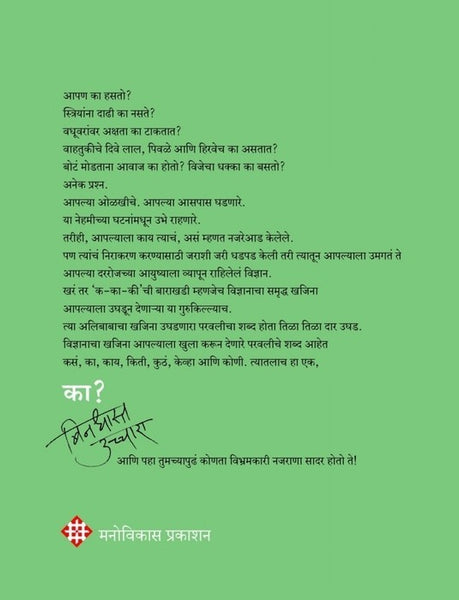 आपण का हसतो?
स्त्रियांना दाढी का नसते?
वधूवरांवर अक्षता का टाकतात?
वाहतुकीचे दिवे लाल, पिवळे आणि हिरवेच का असतात?
बोटं मोडताना आवाज का होतो? विजेचा धक्का का बसतो?
अनेक प्रश्न.
आपल्या ओळखीचे. आपल्या आसपास घडणारे.
या नेहमीच्या घटनांमधून उभे राहणारे.
तरीही, आपल्याला काय त्याचं, असं म्हणत नजरेआड केलेले.
पण त्यांचं निराकरण करण्यासाठी जराशी जरी धडपड केली तरी त्यातून आपल्याला उमगतं ते
आपल्या दररोजच्या आयुष्याला व्यापून राहिलेलं विज्ञान.
खरं तर ‘क-का-की’ची बाराखडी म्हणजेच विज्ञानाचा समृद्ध खजिना
आपल्याला उघडून देणाऱ्या या गुरुकिल्ल्याच.
त्या अलिबाबाचा खजिना उघडणारा परवलीचा शब्द होता तिळा तिळा दार उघड.
विज्ञानाचा खजिना आपल्याला खुला करून देणारे परवलीचे शब्द आहेत
कसं, का, काय, किती, कुठं, केव्हा आणि कोणी. त्यातलाच हा एक,
का?
बिनधास्त
उच्चारा
आणि पहा तुमच्यापुढं कोणता विभ्रमकारी नजराणा सादर होतो ते!
मनोविकास प्रकाशन